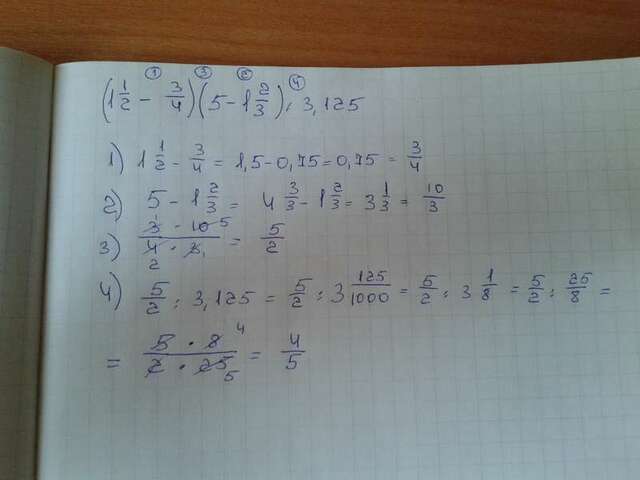 ① ③ ② ④
(1 1/2 - 3/4)(5 - 1 2/3) : 3,125
1) 1 1/2 - 3/4 = 1,5 - 0,75 = 0,75 = 3/4
2) 5 - 1 2/3 = 4 3/3 - 1 2/3 = 3 1/3 = 10/3
3) 3 · 10 5 / 4 2 · 3 1 = 5/2
4) 5/2 : 3,125 = 5/2 : 3 125/1000 = 5/2 : 3 1/8 = 5/2 : 25/8 =
= 5 · 8 4 / 2 · 25 5 = 4/5